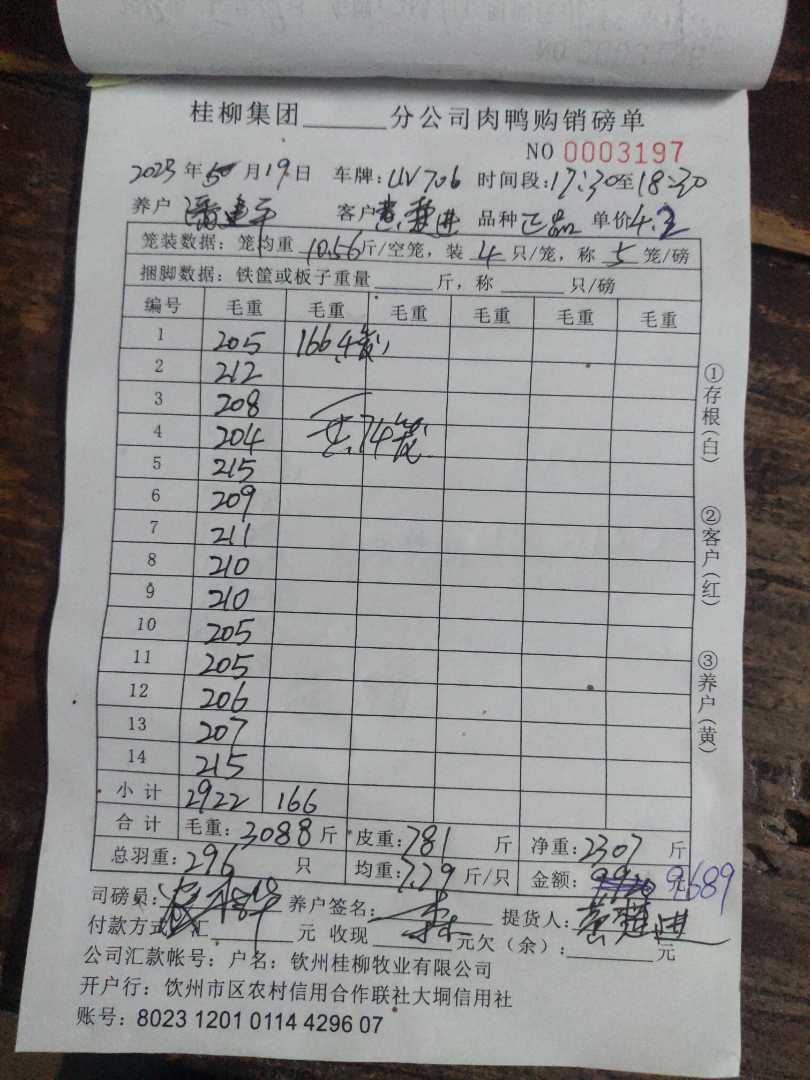 桂柳集团______分公司肉鸭购销磅单
NO 0003197
2023年5月19日 车牌:UV706 时间段:17:30至18:30
养户 客户 黄雅进 品种 正品 单价4.2
笼装数据: 笼均重 10.56斤/空笼, 装 4 只/笼, 称 5 笼/磅
捆脚数据: 铁筐或板子重量______斤, 称______只/磅
编号 毛重 毛重 毛重 毛重 毛重 毛重
1 205 166 4笼
2 212
3 208
4 204 共74笼
5 215
6 209
7 211
8 210
9 210
10 205
11 205
12 206
13 207
14 215
小计 2922 166
合计 毛重:3088斤 皮重:781 斤 净重:2307 斤
总羽重:296 只 均重:7.79 斤/只 金额: 元 9689
司磅员: 养户签名: 提货人:黄雅进
付款方式: 汇______元 收现______元欠(余):______元
公司汇款帐号: 户名: 钦州桂柳牧业有限公司
开户行: 饮州市区农村信用合作联社大垌信用社
账号: 8023 1201 0114 4296 07
①存根(白)
②客户(红)
③养户(黄)